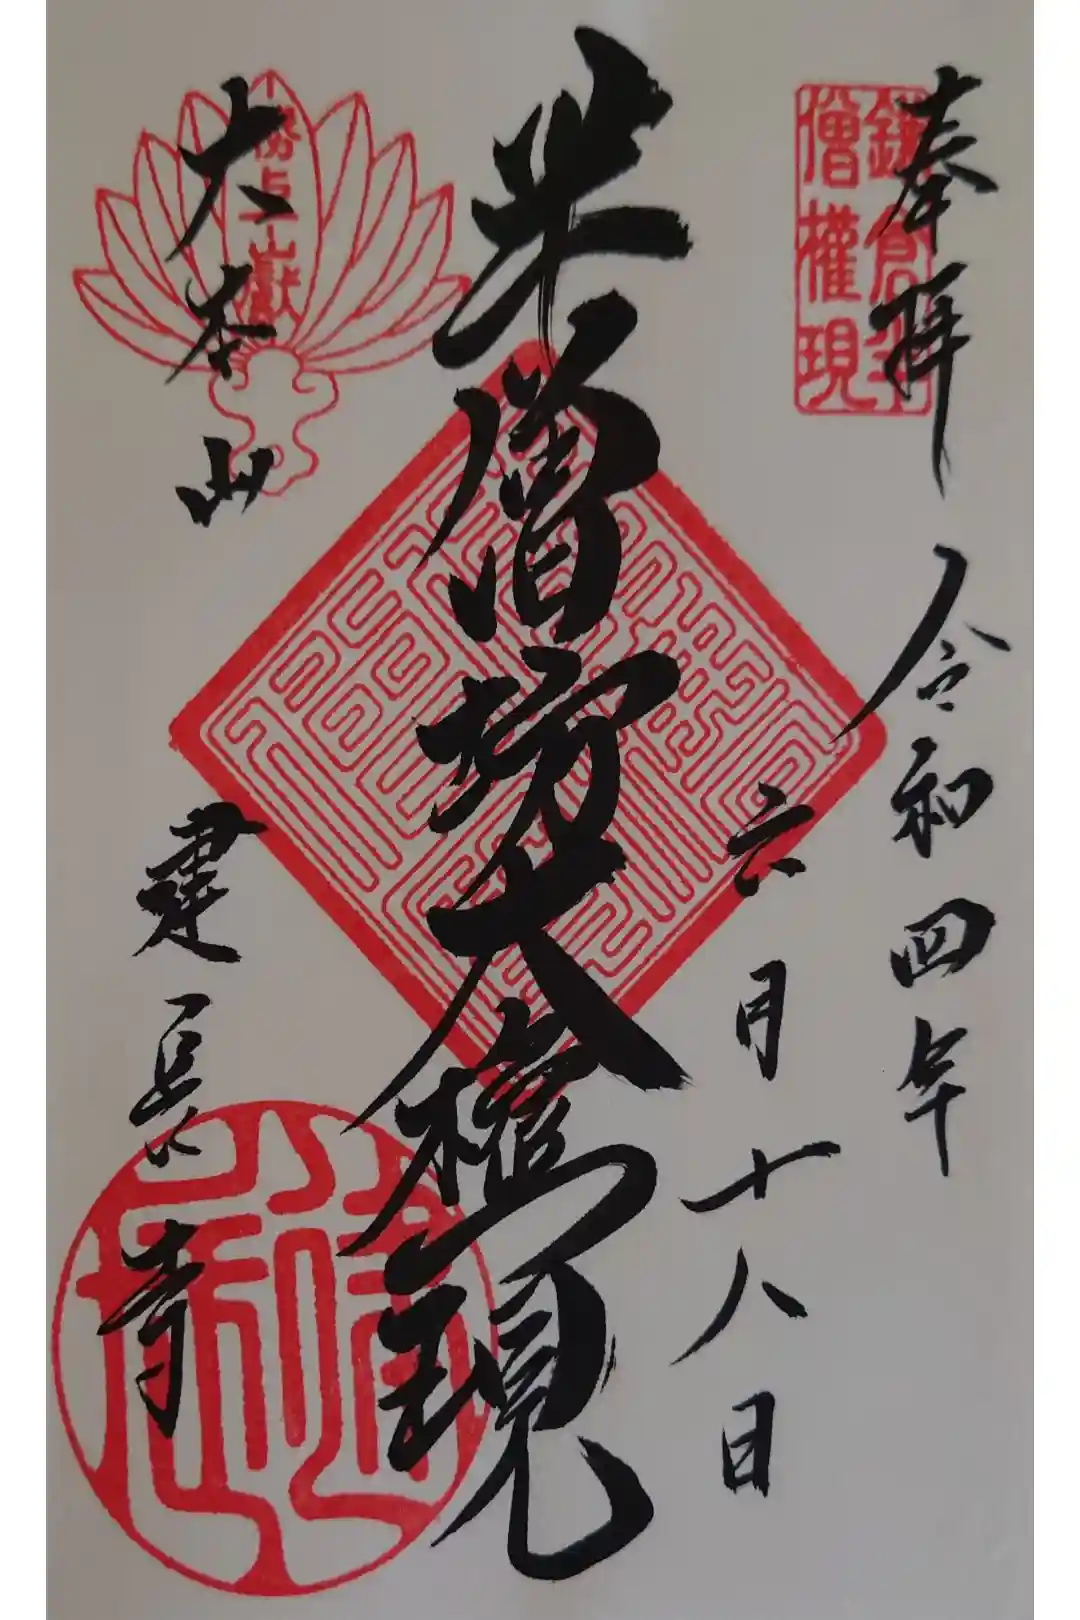 奉拝
令和四年
六月十八日
鎌倉半
僧權現
半僧坊大權現
勝上巘
大本山
建長寺